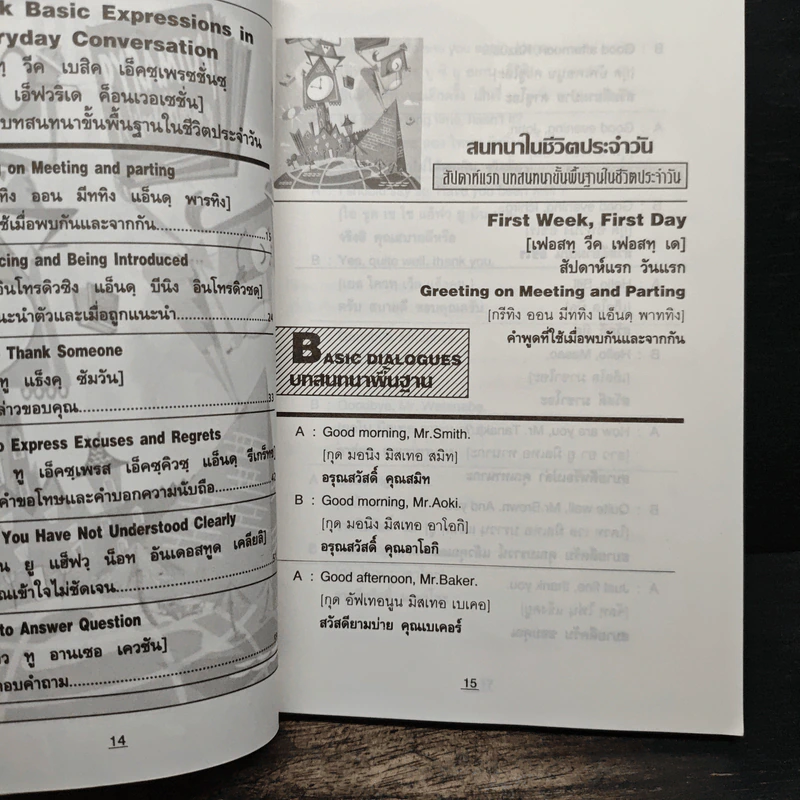 k Basic Expressions in
ryday Conversation
วีค เบสิค เอ็คซฺเพรซชั่นซฺ
เอ็ฟวริเด ค็อนเวอเซชั่น]
บทสนทนาขั้นพื้นฐานในชีวิตประจำวัน
on Meeting and parting
ทิง ออน มีททิง แอ็นดฺ พารทิง]
ช้เมื่อพบกันและจากกัน
15
cing and Being Introduced
อินโทรดิวซิง แอ็นดฺ บีนิง อินโทรดิวซดฺ]
นะนำตัวและเมื่อถูกแนะนำ
24
Thank Someone
ทู แธ็งคฺ ซัมวัน]
ล่าวขอบคุณ
33
o Express Excuses and Regrets
ทู เอ็คซฺเพรส เอ็คซฺคิวซฺ แอ็นดฺ รีเกร็ทซฺ]
คำขอโทษและคำบอกความนับถือ
You Have Not Understood Clearly
น ยู แฮ็ฟวฺ น็อท อันเดอสทูด เคลียลิ]
ณเข้าใจไม่ชัดเจน
to Answer Question
ว ทู อานเซอ เควชัน]
อบคำถาม
14
สนทนาในชีวิตประจำวัน
สัปดาห์แรก บทสนทนาขั้นพื้นฐานในชีวิตประจำวัน
First Week, First Day
[เฟอสทฺ วีค เฟอสทฺ เด]
สัปดาห์แรก วันแรก
Greeting on Meeting and Parting
[กรีทิง ออน มีททิง แอ็นดฺ พาททิง]
คำพูดที่ใช้เมื่อพบกันและจากกัน
BASIC DIALOGUES
บทสนทนาพื้นฐาน
A : Good morning, Mr.Smith.
[กุด มอนิง มิสเทอ สมิท]
อรุณสวัสดิ์ คุณสมิท
B : Good morning, Mr.Aoki.
[กุด มอนิง มิสเทอ อาโอกิ]
อรุณสวัสดิ์ คุณอาโอกิ
A : Good afternoon, Mr.Baker.
[กุด อัฟเทอนูน มิสเทอ เบเคอ]
สวัสดียามบ่าย คุณเบเคอร์
15